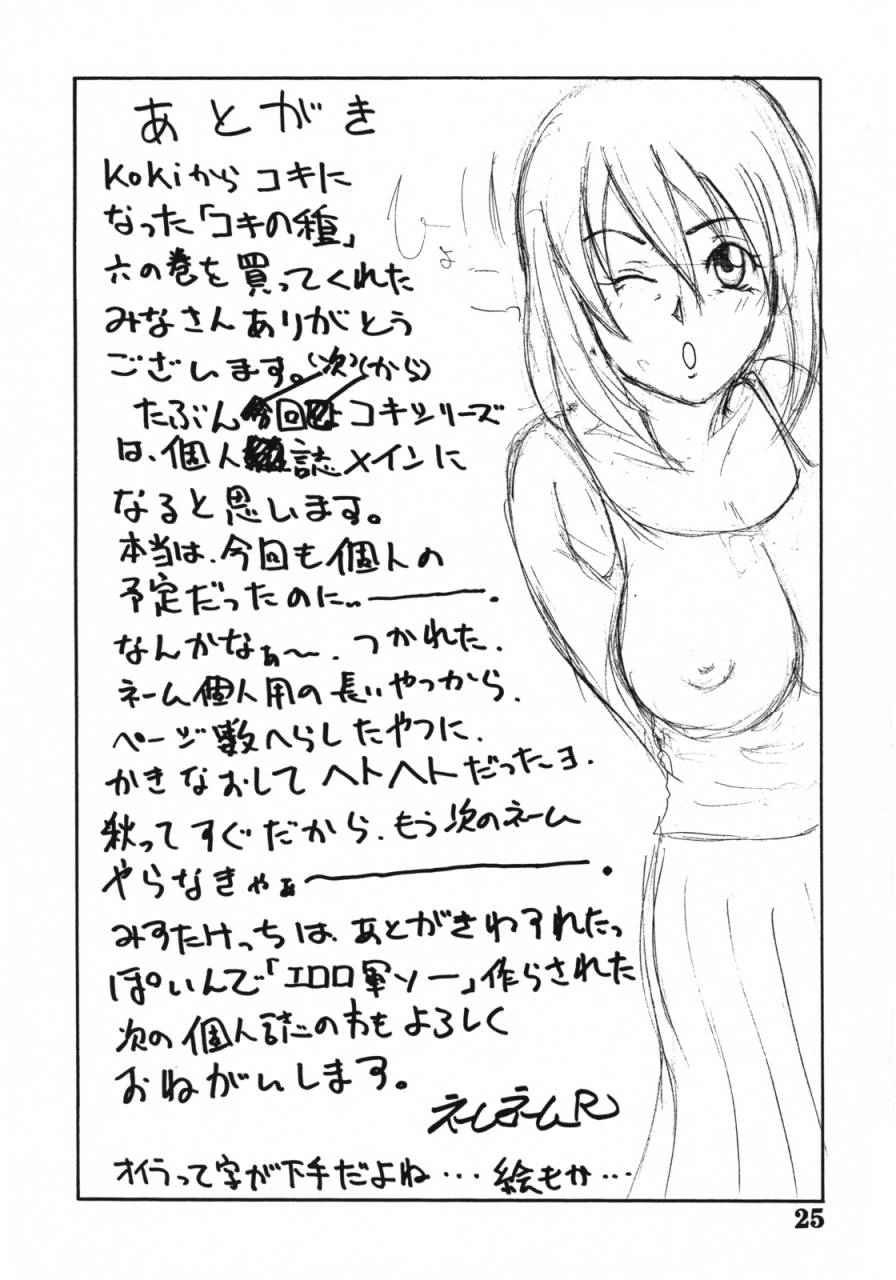 あとがき
kokiから コキに
なった「コキの種」
六の巻を買ってくれた
みなさんありがとう
ございます。(次)(から)
たぶん今回 コキシリーズ
は、個人誌メインに
なると思います。
本当は、今回も個人の
予定だったのに..―――.
なんかなぁ～. つかれた.
ネーム個人用の長いやつから.
ページ数へらしたやつに.
かきなおしてヘトヘトだったーヨ.
秋ってすぐだから、もう次のネーム
やらなきゃぁ―――――.
みすたけっちは、あとがきわすれたっ
ぽいんで「エロロ軍ソー」作らされた
次の個人誌のわもよろしく
おねがいします。
ネムネムR
オイラって字が下手だよね・・・絵もか・・・
25